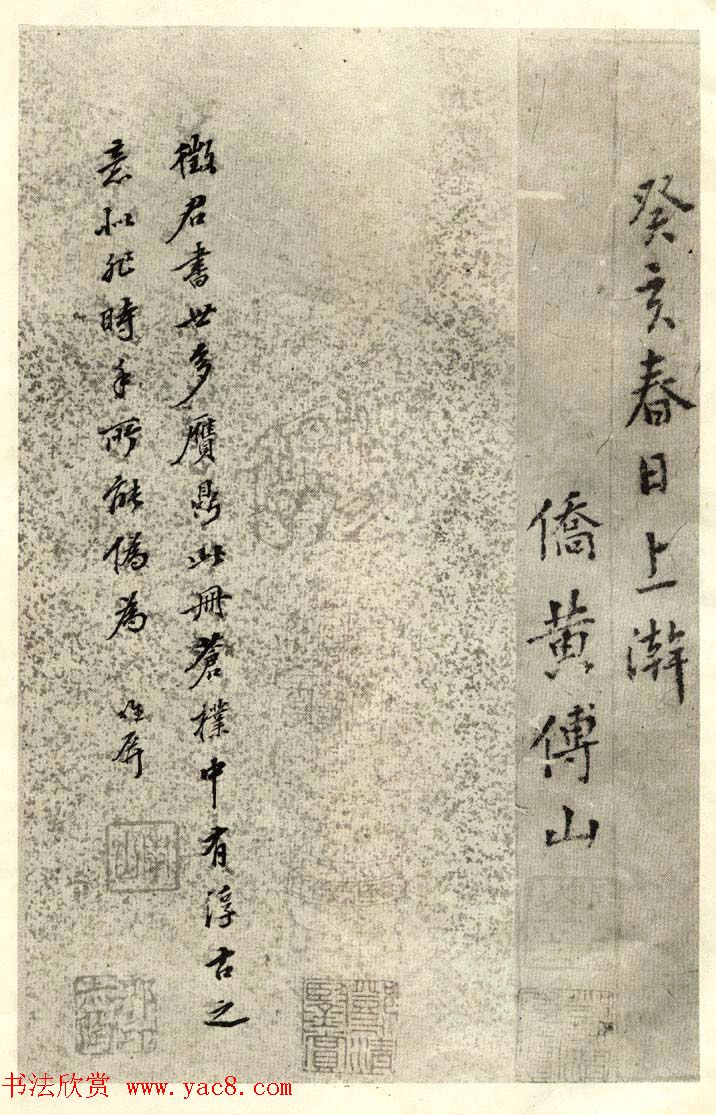 癸亥春日上澣
僑黄傅山
徵君書世多贋鼎此冊蒼樸中有淳古之
意似非時手所能偽為
书法欣赏 www.yac8.com